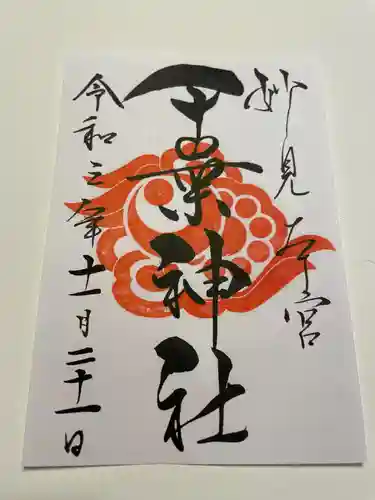 妙見本宮
千葉神社
令和元年十一月二十一日